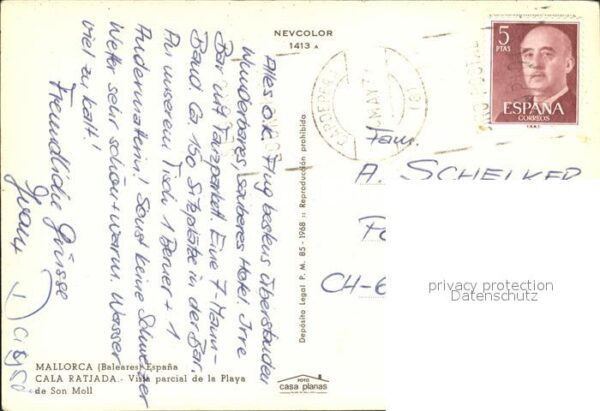 NEVCOLOR
1413 A
Alles o.k. Flug bestens überstanden
Wunderbares, sauberes Hotel. Irre
Bar mit Tanzparkett. Eine 7-Mann-
Band. Ca 150 Sitzplätze in der Bar.
An unserem Tisch 1 Berner + 1
Andermatterin! Sonst keine Schweizer
Wetter sehr schön + warm. Wasser
viel zu kalt!
Freundliche Grüsse
MALLORCA (Baleares) España
CALA RATJADA.- Vista parcial de la Playa
de Son Moll
Depósito Legal P. M. 85 - 1968 :: Reproducción prohibida
FOTO
casa planas
5
PTAS
ESPAÑA
CORREOS
Fam.
A. SCHELKER
CH-6
privacy protection
Datenschutz